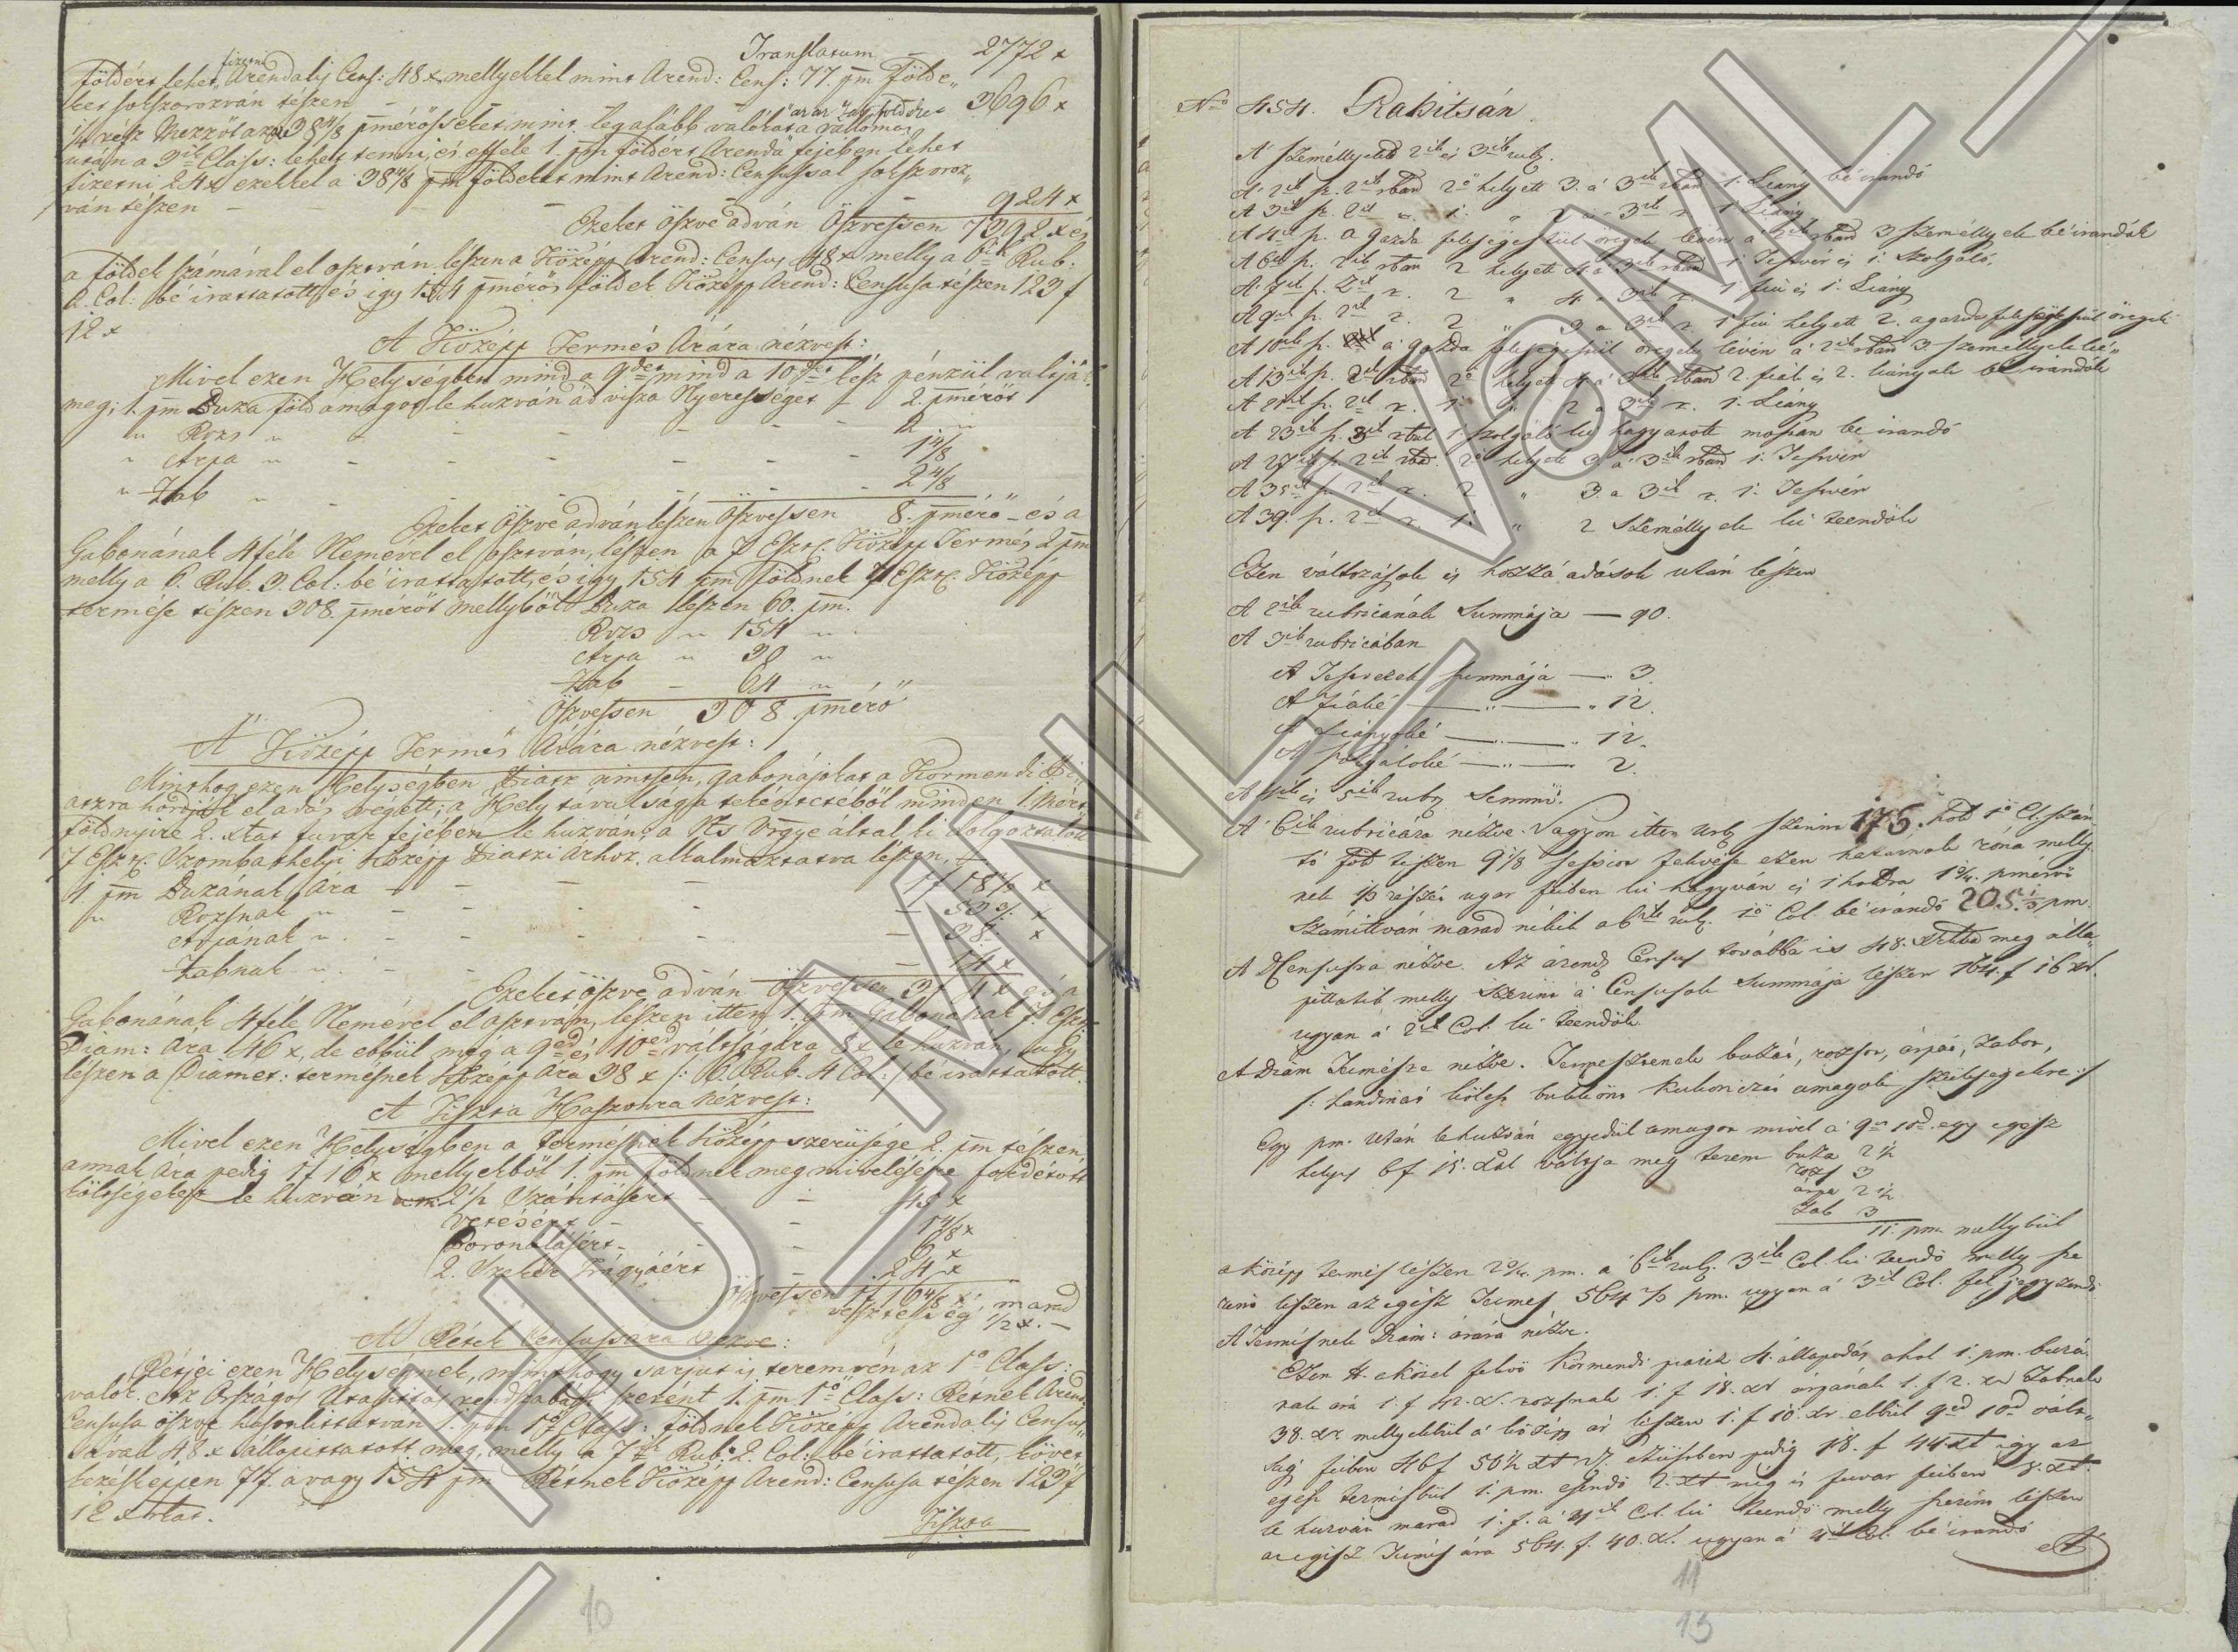 Translatum — 2772 x
földért lehet fizetni Arendalis Cens: 48 x mellyekkel mint Arend: Cens: 77. pm Földe„
ket sokszorozván tészen — — — 3696 x
¼ rész Mezzőt az az 38 4/8 pmérősseket mint legalább valókat a vallomás
után a 3ik Class: lehet tenni, és efféle 1. pm földért Arenda fejében lehet
fizetni 24 x ezekkel a 38 4/8 pm földeket mint Arend: Censussal sokszoroz„
ván tészen — — — 924 x
Ezeket öszve adván Öszvessen 7392 x és
a földek számával el osztván lészen a Közép Arend: Census 48 x melly a 6ik Rub:
2. Col: bé irattatott, és igy 154 pmérős földek Középp Arend: Censusa tészen 123 f
12 x
A Középp Termés Árára nézvest:
Mivel ezen Helységben mind a 9det mind a 10det kész pénzül valtják
meg; 1. pm Buza föld a magot le huzván ád visza Nyereséget — 2. pmérőt
„ Rozs „ — — — 2 „
„ Árpa „ — — — 1 4/8
„ Zab „ — — — 2 4/8
Ezeket Öszve adván lészen Öszvessen 8. pmérő — és a
Gabonának 4 féle Nemével el osztván, lészen a 7 Eszt. Középp Termés 2 pm
melly a 6. Rub. 3. Col: bé irattatott, és igy 154 pm Földnek 7 Eszt. Középp
termése tészen 308. pmérőt mellyből Buza lészen 60. pm.
Rozs „ 154 „
Árpa „ 30 „
Zab — 64 „
Öszvessen 308 pmérő
A Középp Termés Árára nézvest:
Minthogy ezen Helységben Piatz nintsen, gabonájokat a Körmendi Pi„
atzra hordják el adás végett; a Hely távulsága tekéntetéből minden 1. Mérő
földnyire 2. xtat fuvar fejében le huzván; a Ns Vrgye által ki dolgoztatott
7 Eszt. Szombathelyi Középp Piatzi Árhoz alkalmaztatva lészen,
1 pm Buzának Ára — — — 1 f 18 x
„ Rozsnak „ — — — x
Árpának „ — — — 38 x
Zabnak „ — — — x
Ezeket öszve adván Öszvessen 3 f 4 x és a
Gabonának 4 féle Nemével el osztván, lészen itten 1. pm Gabonának 7. Eszt.
Diam: Ára 46 x, de ebbül még a 9ed és 10ed váltságára 8 x le huzván, ugy
lészen a Diamet: termésnek Középp Ára 38 x /: 6. Rub. 4 Col: / bé irattatott.
A Tiszta Haszonra nézvest:
Mivel ezen Helységben a termésnek Középp szerüsége 2. pm tészen,
annak Ára pedig 1 f 16 x mellyekből 1. pm földnek meg mivelésére fordétott
költségeket le huzván 2 ½ Szántásért — — 45 x
Vetésért — — 1 4/8 x
Boronálásért — — 6 x
2. Szekér Trágyáért — 24 x
Öszvessen 1 f 16 4/8 x, marad
veszteség ½ x. —
A Rétek Censussára Nézve:
Rétjei ezen Helységnek, minthogy sarjut is teremvén az 1ő Class:
valók. Az Országos Utasitás rendszabási szerent 1. pm 1ő Class: Rétnek Arend:
Censusa öszve hasonlittatván 1. pm 1ő Class: földnek Középp Arendalis Census„
sával 48 x állapittatott meg, melly a 7ik Rub: 2. Col: bé irattatott, követ
kezésképpen 77. avagy 154 pm Rétnek Középp Arend: Censusa tészen 123 f
12 xtkat.
Tiszta
10
No 454. Rakitsán
A' Személlyekrül 2ik és 3ik rub.
A' 2ik p. 2ik rban 2ő helyett 3. a' 3ik rban 1. Leány bé irandó
A 3ik p. 2ik r. 1. „ 2 a' 3ik r. 1 Leány
A 4ik p. a gazda feleségestül öregek lévén a 2ik rban 3 személlyek bé irandók
A 6ik p. 2ik rban 2 helyett 4 a' 3ik rban 1. Testvér és 1. Szolgáló.
A 7ik p. 2ik r. 2 „ 4 a 3ik r. 1 fiú és 1. Leány
A 9ik p. 2ik r. 2 „ 3 a 3ik r. 1 fiú helyett 2. a gazda feleségestül öregek
A 10ik p. a gazda feleségestül öregek lévén a' 2ik rban 3 személlyek bé„
A 13ik p. 2ik rban 2ő helyett 4 a' 3ik rban 2. fiak és 2. leányok bé irandók
A 21ik p. 2ik r. 1. „ 2 a 3ik r. 1. Leány
A 23ik p. 3ik rbul 1. szolgáló ki hagyatott mostan bé irandó
A 27ik p. 2ik rba. 2ő helyett 3. a' 3ik rban 1. Testvér
A 35ik p. 2ik r. 2 „ 3. a 3ik r. 1. Testvér
A 39. p. 2ik r. 1. „ 2 Személlyek ki teendők
Ezen változások és hozzá adások után lészen
A 2ik rubricának Summája — 90.
A 3ik rubricában
A Testvérek summájá — 3.
A Fiaké — „ — „ 12.
A Leányoké — „ — „ 12.
A szolgálóké — „ — 2.
A 4ik és 5ik rub. Semmi.
A' 6ik rubricára nézve. Vagyon itten Urb szerint 176. hold 1ő Cl. szán„
tó föld tészen 9 1/8 sessiot fekvése ezen határnak róna melly
nek 1/3 részét ugar fejben ki hagyván és 1 holdra 1¾. pmérőt
Számittván marad nékik a 6ik rub. 1ő Col. bé irandó 205. 1/3 pm.
A Censusra nézve. Az árend. Census továbbá is 48. xrkban meg álla„
pittatik melly szerint a' Censusok Summája lészen 164. f 16 xr.
ugyan a' 2ik Col. ki teendők
A Diám Termésre nézve. Termesztenek buzát, rozsot, árpát, zabot,
/: handinát kölest burkiönt kukoriczát a magok szükségekre :/
Egy pm. után lehuzván egyedül a magot mivel a' 9et 10d. egy egész
helyes 6 f 15. xrl váltja meg terem buza 2 ½
rozs 3
árpa 2 ½
zab 3
11. pm. mellybül
a közép termés lészen 2¾. pm. a' 6ik rub. 3ik Col. ki teendő melly sze
rint lészen az egész Termés 564 2/3 pm. ugyan a' 3ik Col. fel jegyzendő
A Termésnek Diám: árára nézve.
Ezen H. közel fekvő Körmendi piatz H. állapodás ahol 1. pm. buzá„
nak ára 1. f 42. x. rozsnak 1. f 18. xr árpának 1. f 2. xr Zabnak
38. xr mellyekbül a' középp ár lészen 1. f 10. xr. ebbül 9ed 10d vált„
ság fejben 46 f 56 ½ xr V. ezüstben pedig 18. f 44 xr igy az
egész termésbül 1. pm. esendő 2. xt még és fuvar fejében 8. xt.
le huzván marad 1. f. a 4ik Col. ki teendő melly szerint lészen
az egész Termés ára 564. f. 40. x. ugyan a' 4ik Col. bé irandó
A'
11
13
HU MNL VaML